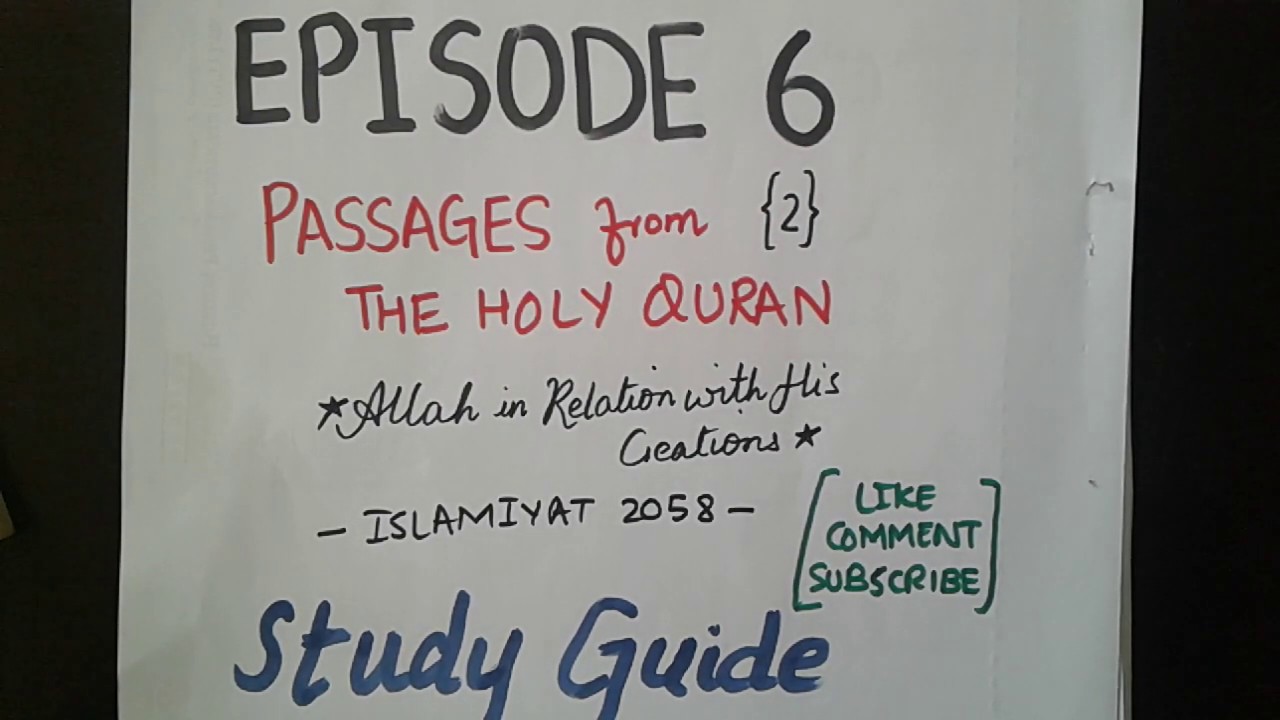 EPISODE 6
PASSAGES from {2}
THE HOLY QURAN
★Allah in Relation with His
Creations★
- ISLAMIYAT 2058 -
[LIKE
COMMENT
SUBSCRIBE]
Study Guide